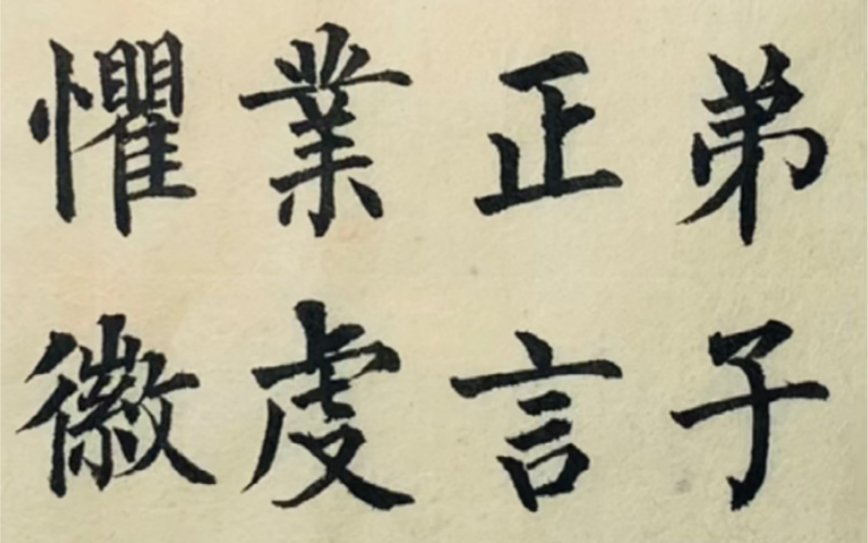 弟子
正言
業虔
懼徽